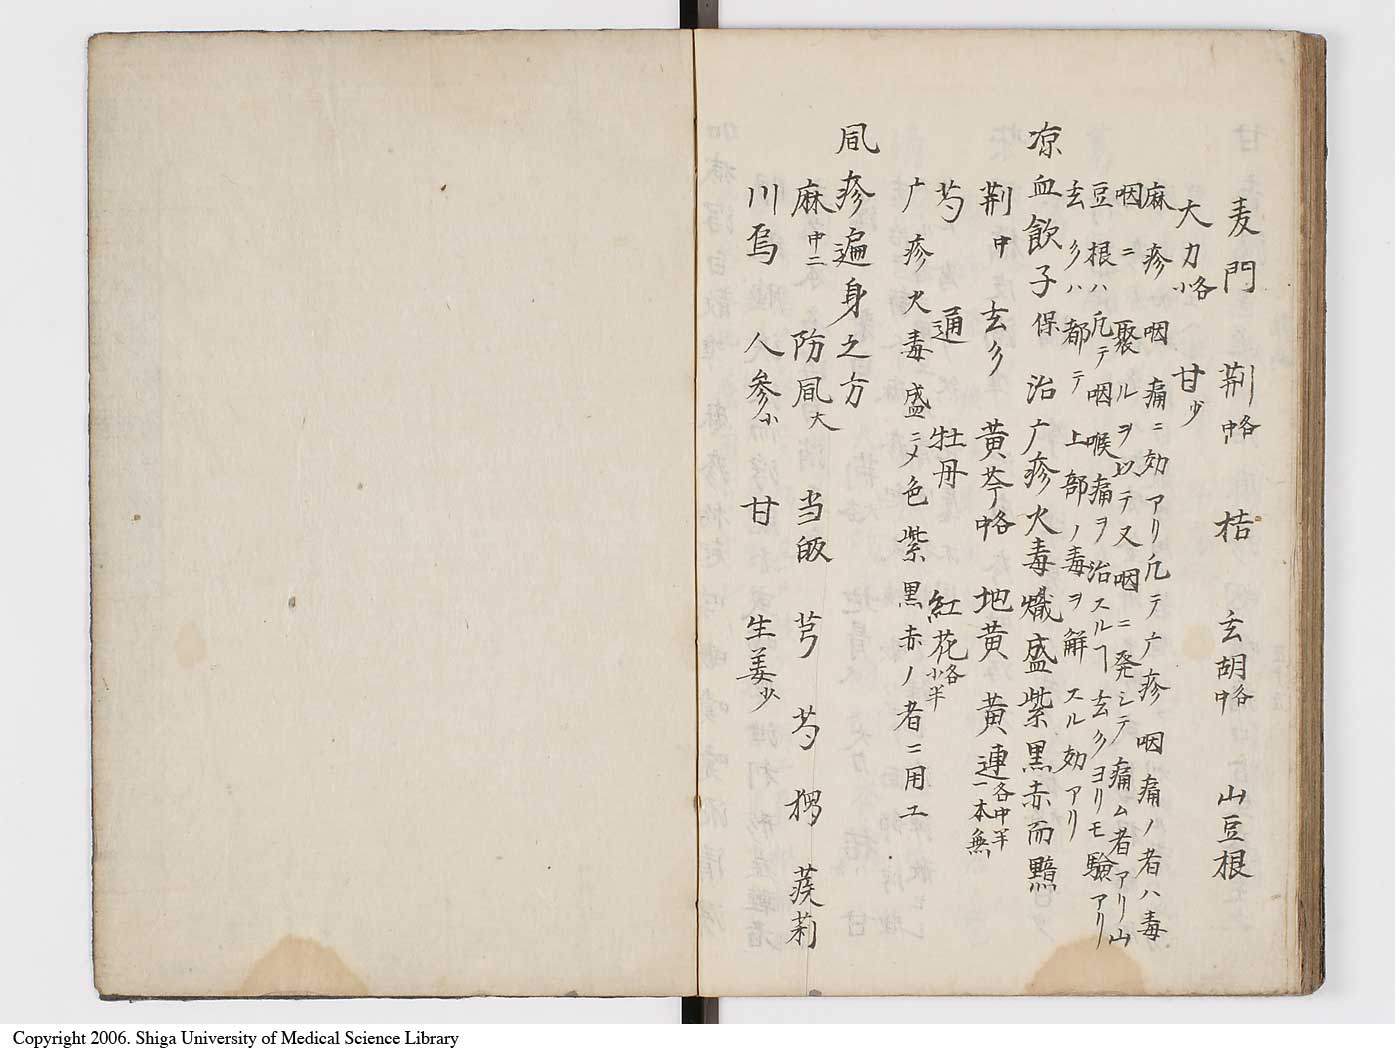 麦門 荆中各 桔 玄胡中各 山豆根
大力小各 甘少
麻疹咽痛ニ効アリ凡テ广疹咽痛ノ者ハ毒
咽ニ聚ルヲ以テ又咽ニ発シテ痛ム者アリ山
豆根ハ凡テ咽喉痛ヲ治スルヿ玄参ヨリモ驗アリ
玄参ハ都テ上部ノ毒ヲ解スル効アリ
凉血飲子保 治广疹火毒熾盛紫黒赤而黯
荆中 玄参 黄芩中各 地黄 黄連各中半一本無
芍 通 牡丹 紅花各小半
广疹火毒盛ニメ色紫黒赤ノ者ニ用エ
風疹遍身之方
麻中二 防風大 当皈 芎 芍 蒺莉
川烏 人参小 甘 生姜少
Copyright 2006. Shiga University of Medical Science Library